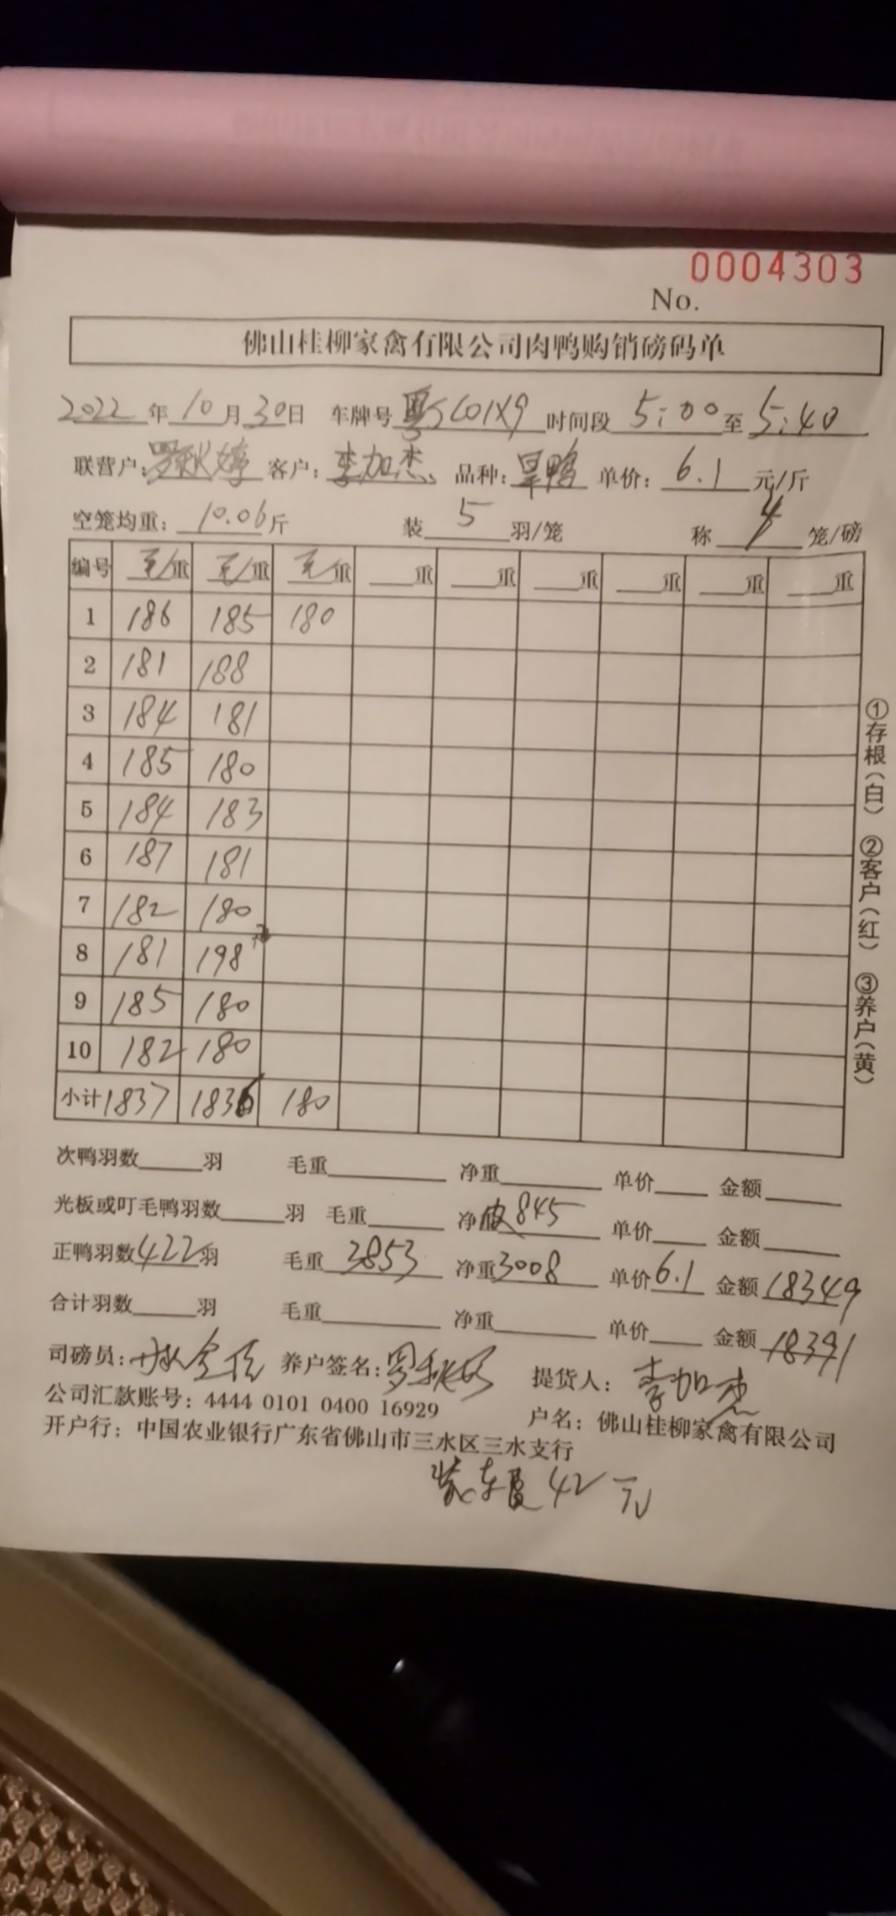 0004303
No.
佛山桂柳家禽有限公司肉鸭购销磅码单
2022年10月30日 车牌号 粤 C01X9 时间段 5:00 至 5:40
联营户: 罗秋 客户: 李加杰 品种: 旱鸭 单价: 6.1 元/斤
空笼均重: 10.06 斤 装 5 羽/笼 称 4 笼/磅
编号 毛重 毛重 毛重 重 重 重 重 重 重
1 186 185 180
2 181 188
3 184 181
4 185 180
5 184 183
6 187 181
7 182 180
8 181 198
9 185 180
10 182 180
小计 1837 1836 180
次鸭羽数 羽 毛重 净重 单价 金额
光板或叮毛鸭羽数 羽 毛重 净皮 845 单价 金额
正鸭羽数 422 羽 毛重 3853 净重 3008 单价 6.1 金额 18349
合计羽数 羽 毛重 净重 单价 金额 18391
司磅员: 养户签名: 罗秋 提货人: 李加杰
公司汇款账号: 4444 0101 0400 16929 户名: 佛山桂柳家禽有限公司
开户行: 中国农业银行广东省佛山市三水区三水支行
装车费 42 元
①存根(白) ②客户(红) ③养户(黄)